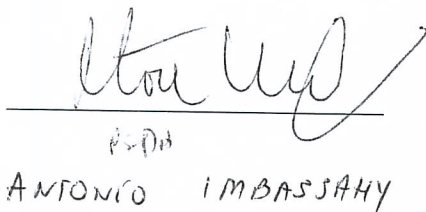 PSDB
ANTONIO IMBASSAHY